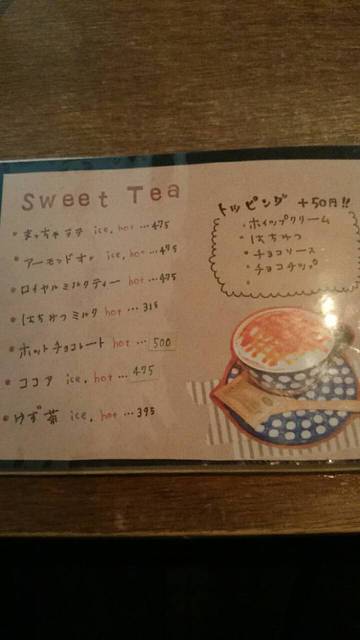 Sweet Tea
• まっちゃラテ ice, hot …475
• アーモンドオレ ice, hot …475
• ロイヤルミルクティー hot …475
• はちみつミルク hot …315
• ホットチョコレート hot … 500
• ココア ice, hot … 475
• ゆず茶 ice, hot …395
トッピング +50円!!
・ホイップクリーム
・はちみつ
・チョコソース
・チョコチップ